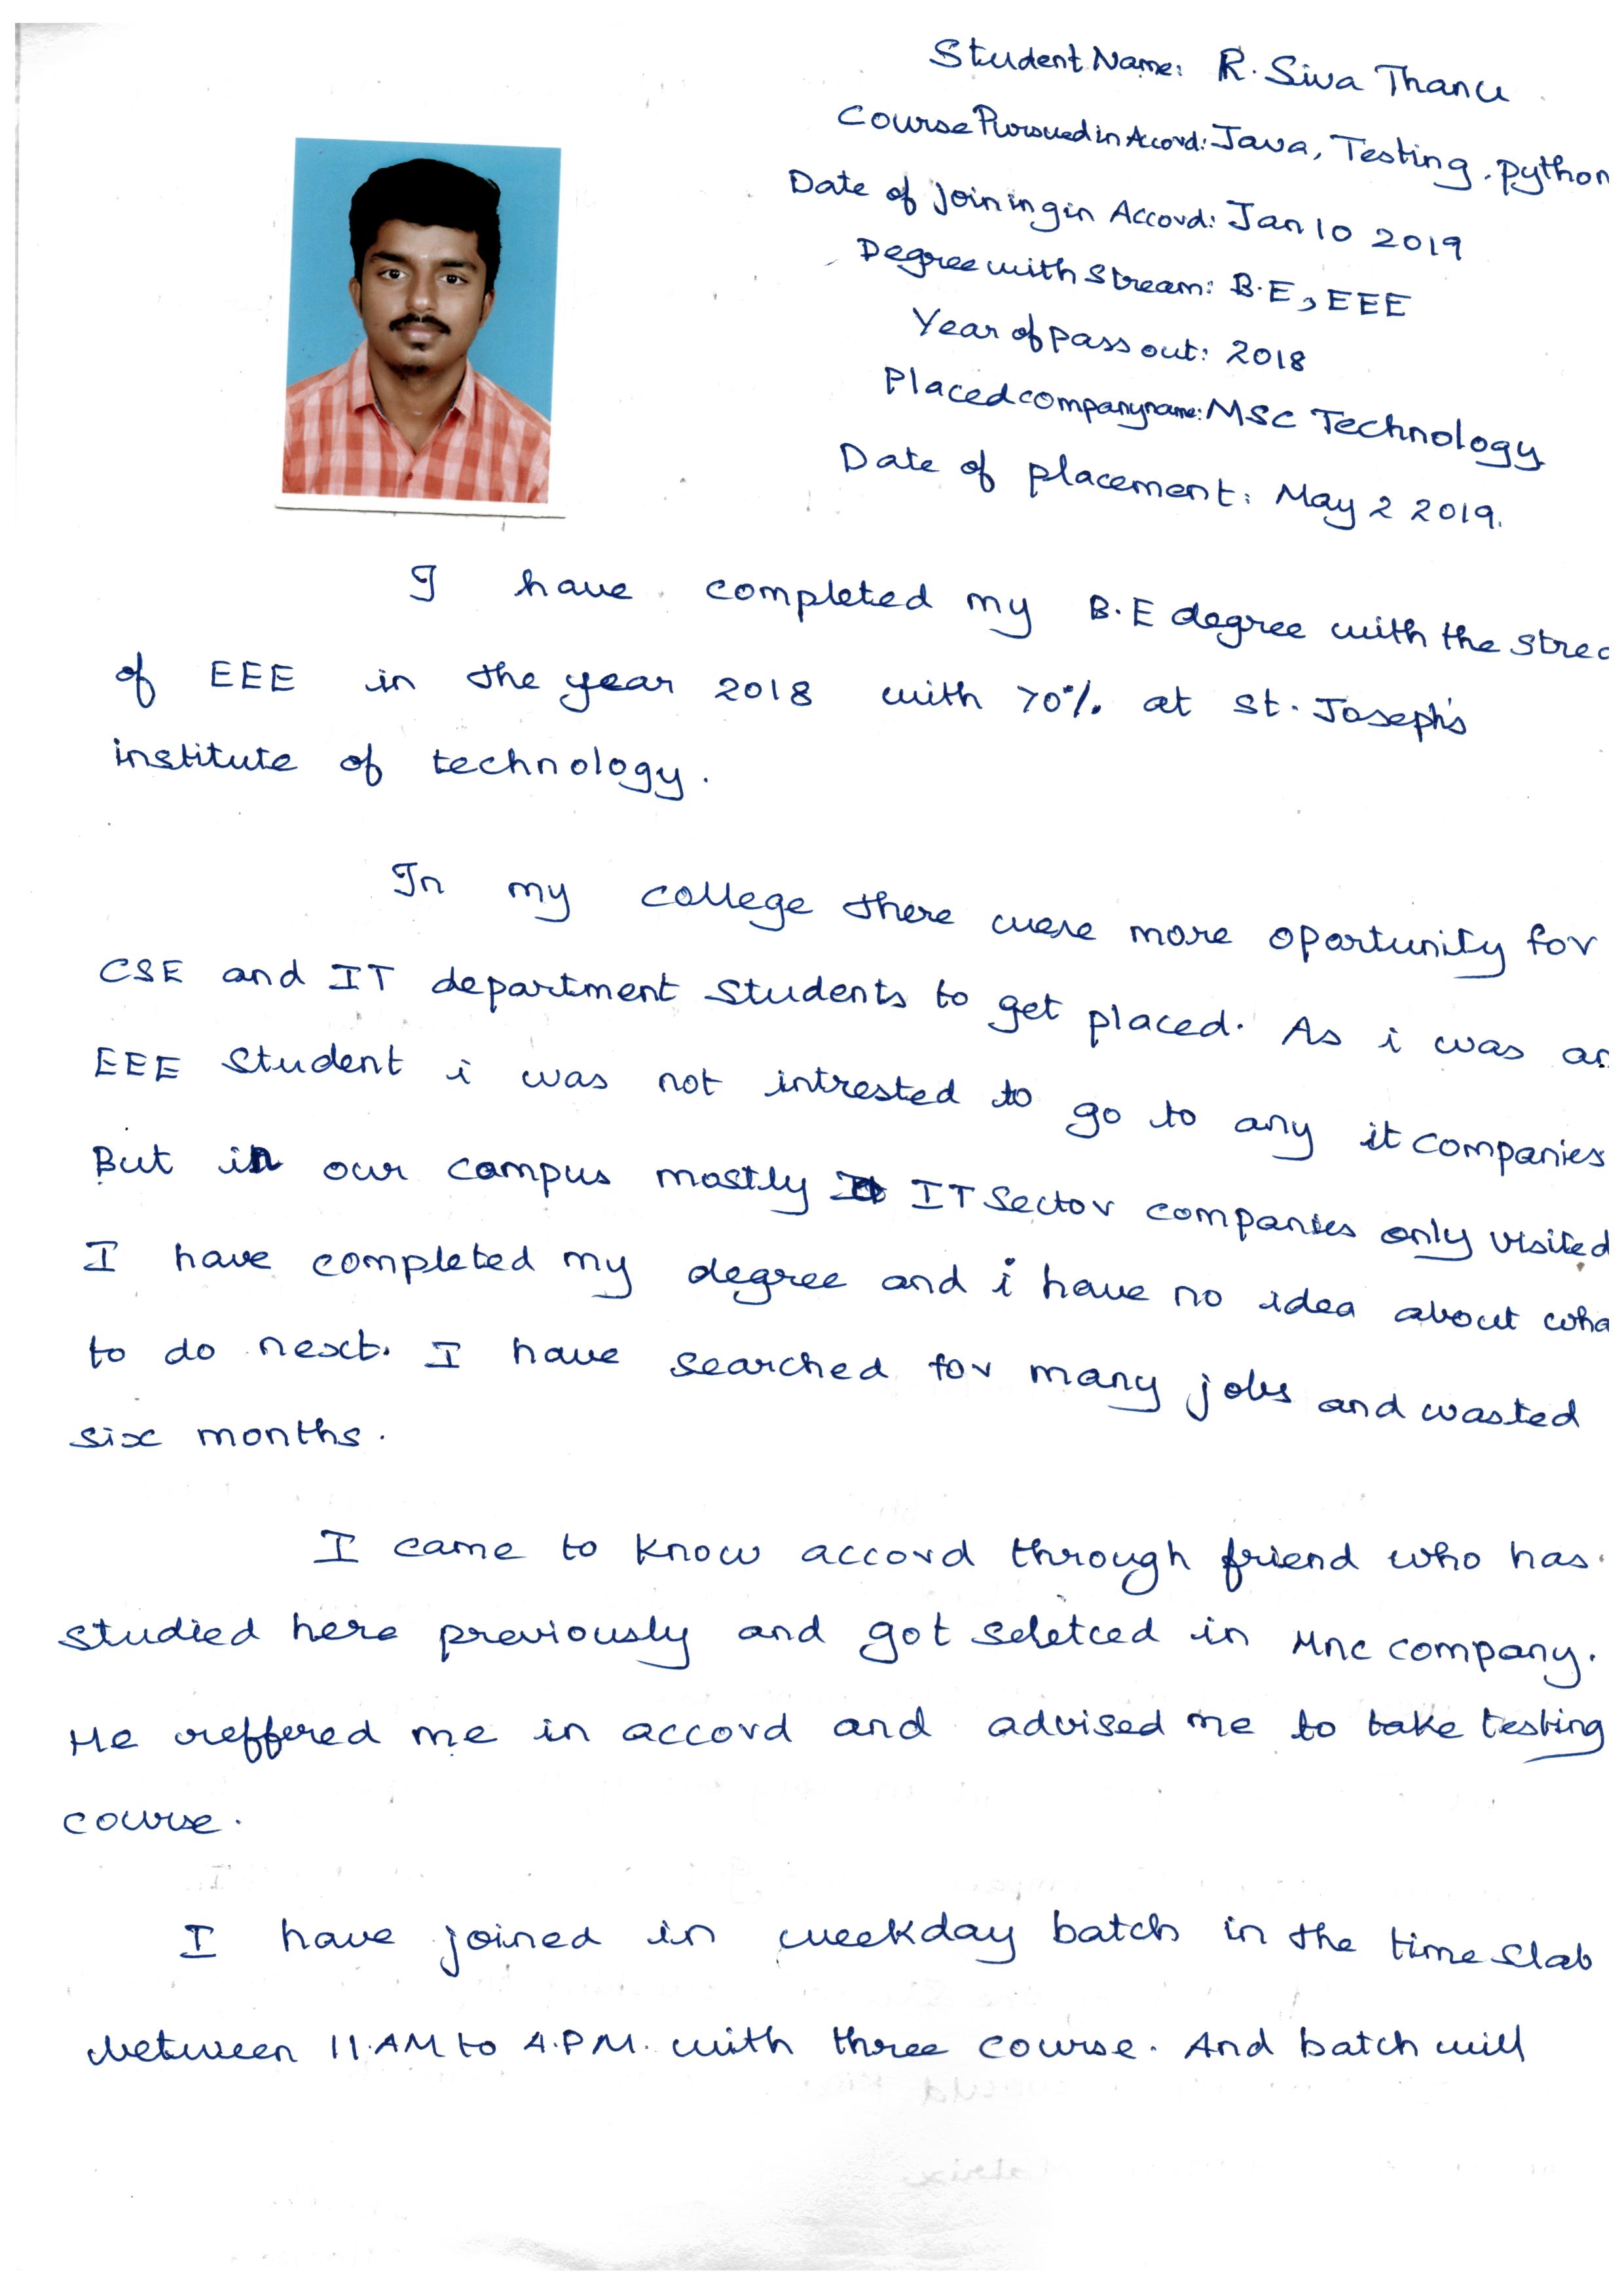 Student Name: R. Siva Thanu
Course Pursued in Accord: Java, Testing, python
Date of Joining in Accord: Jan 10 2019
Degree with Stream: B.E, EEE
Year of pass out: 2018
Placed company name: MSC Technology
Date of placement: May 2 2019.
I have completed my B.E degree with the strea
of EEE in the year 2018 with 70% at St. Joseph's
institute of technology.
In my college there were more oportunity for
CSE and IT department students to get placed. As i was an
EEE Student i was not intrested to go to any it companies
But in our campus mostly IT Sector companies only visited
I have completed my degree and i have no idea about wha
to do next. I have searched for many jobs and wasted
six months.
I came to know accord through friend who has
studied here previously and got seletced in Mnc company.
He reffered me in accord and advised me to take testing
course.
I have joined in weekday batch in the time slab
between 11.AM to 4.P.M. with three course. And batch will